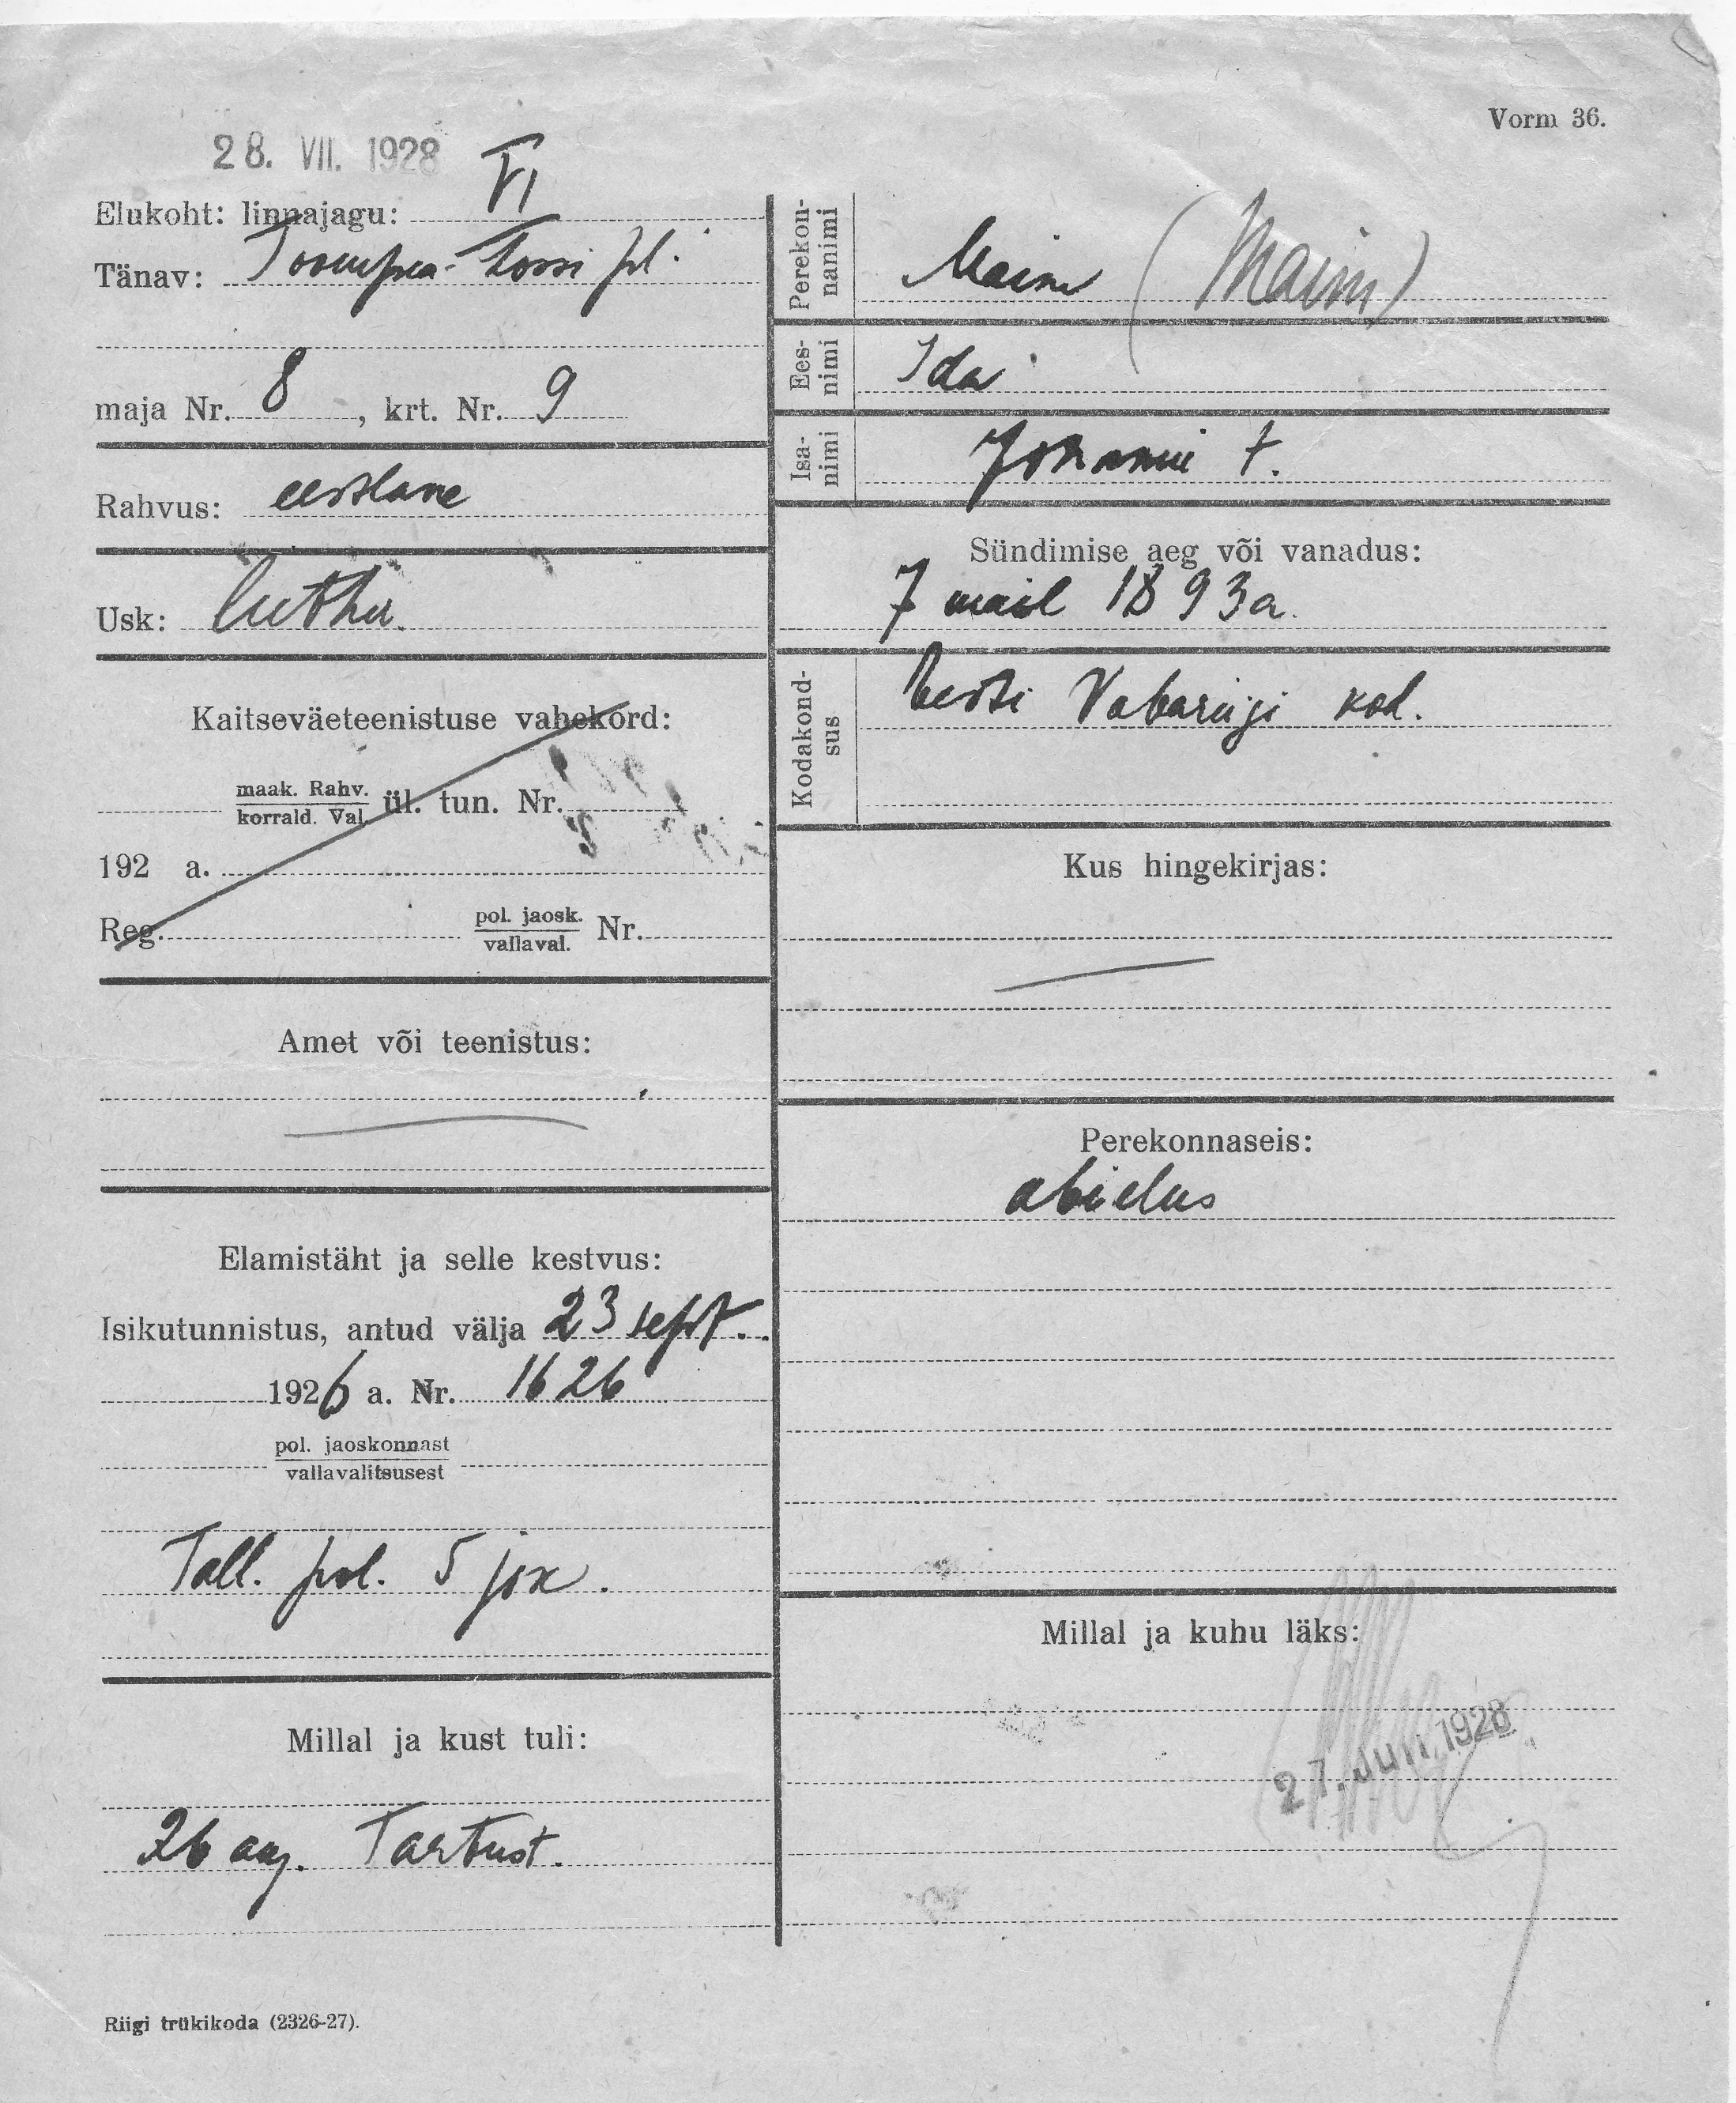 Vorm 36.
28. VII. 1928
Elukoht: linnajagu: VI
Tänav: Toompea-Lossi pl.
maja Nr. 8, krt. Nr. 9
Rahvus: eestlane
Usk: luthu.
Kaitseväeteenistuse vahekord:
maak. Rahv.
korrald. Val.
ül. tun. Nr.
192 a.
Reg. pol. jaosk.
vallaval.
Nr.
Amet või teenistus:
Elamistäht ja selle kestvus:
Isikutunnistus, antud välja 23 sept.
1926 a. Nr. 1626
pol. jaoskonnast
vallavalitsusest
Tall. pol. 5 jsk.
Millal ja kust tuli:
26 aug. Tartust.
Riigi trükikoda (2326-27).
Perekon-
nanimi
Maim (Maim)
Ees-
nimi
Ida
Isa-
nimi
Johanni t.
Sündimise aeg või vanadus:
7 mail 1893 a.
Kodakond-
sus
Eesti Vabariigi kod.
Kus hingekirjas:
Perekonnaseis:
abielus
Millal ja kuhu läks:
27. Juli 1928